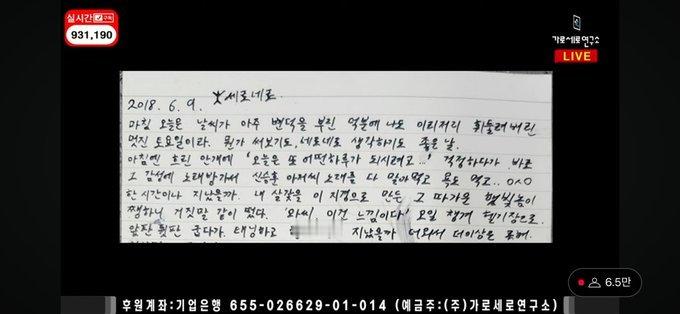 실시간 구독
931,190
가로세로연구소
LIVE
2018. 6. 9. 세로네로.
마침 오늘은 날씨가 아주 변덕을 부린 덕분에 나도 이리저리 휘둘려버린
멋진 토요일이라. 뭔가 써보기도, 네로네로 생각하기도 좋은 날.
아침엔 흐린 안개에 '오늘은 또 어떤하루가 되시려고...' 걱정하다가 바로
그 감성에 노래방가서 신승훈 아저씨 노래를 다 잊어먹고 목도 먹고..
한 시간이나 지났을까. 내 살갗을 이 지경으로 만든 그 따가운 햇빛놈이
쨍하니 거짓말 같이 떴다. '와씨, 이건 느낌이다' 요일 챙겨 헬기장으로.
앞판 뒷판 굽다가. 태닝하고 지났을까 더워서 더이상은 못해.
6.5만
후원계좌:기업은행 655-026629-01-014 (예금주:(주)가로세로연구소)